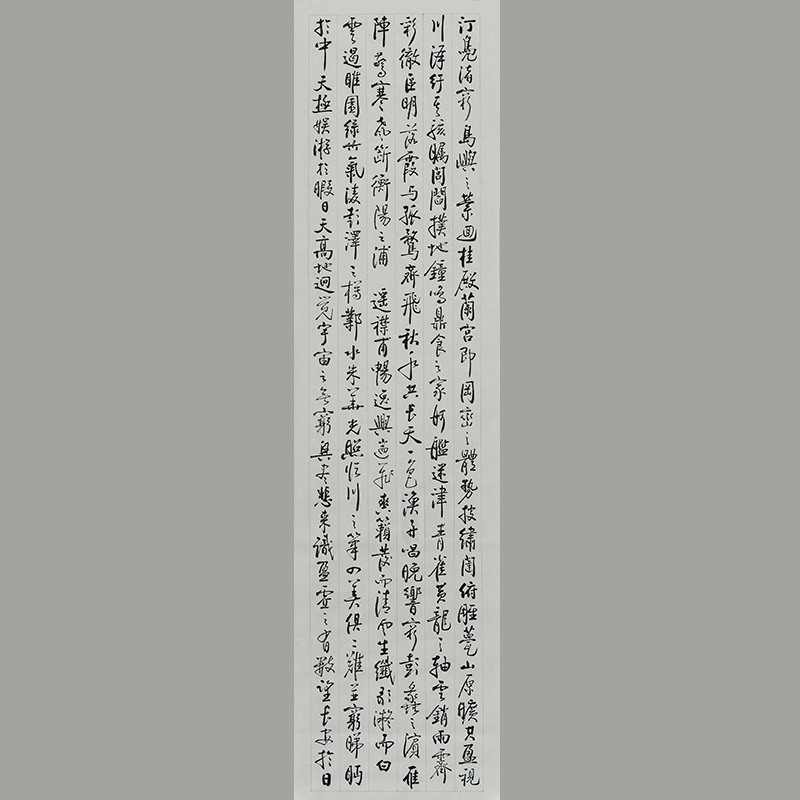 汀鳧渚窮島嶼之縈迴桂殿蘭宮即岡巒之體勢披繡闥俯雕甍山原曠其盈視
川澤紆其駭矚閭閻撲地鐘鳴鼎食之家舸艦迷津青雀黃龍之軸雲銷雨霽
彩徹區明落霞与孤鶩齊飛秋水共長天一色漁舟唱晚響窮彭蠡之濱雁
陣驚寒聲斷衡陽之浦 遥襟甫暢逸興遄飛爽籟發而清風生纖歌凝而白
雲遏睢園綠竹氣凌彭澤之樽鄴水朱華光照臨川之筆四美俱二難並窮睇眄
於中天極娛游於暇日天高地迥覺宇宙之無窮興盡悲來識盈虛之有數望長安於日